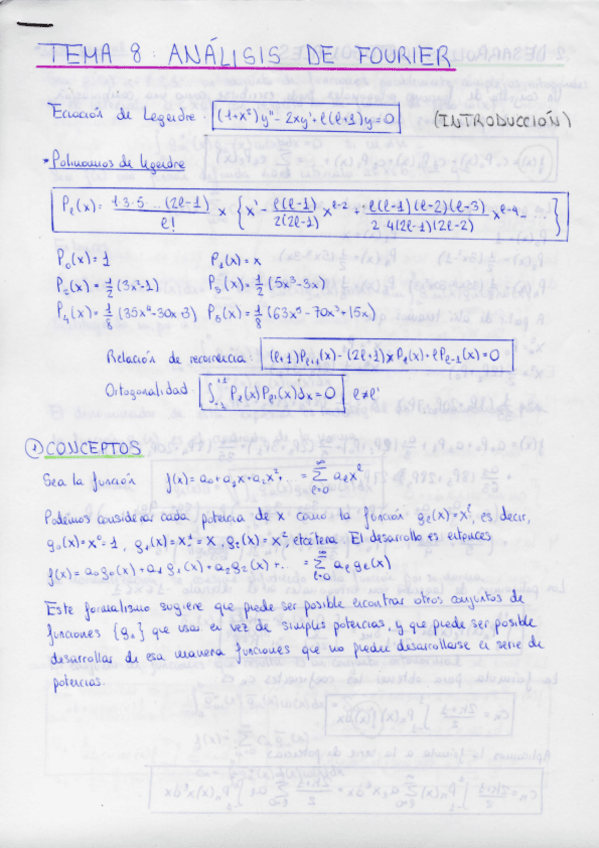 TEMA 8: ANÁLISIS DE FOURIER
Ecuación de Legendre: (1+x²)y''-2xy'+ℓ(ℓ+1)y=0 (INTRODUCCIÓN)
• Polinomios de Legendre
Pℓ(x)= 1·3·5·...(2ℓ-1)/ℓ! x { xˡ - ℓ(ℓ-1)/2(2ℓ-1) x^ℓ-2 + ℓ(ℓ-1)(ℓ-2)(ℓ-3)/2·4(2ℓ-1)(2ℓ-2) x^ℓ-4 - ... }
P₀(x)=1 P₁(x)=x
P₂(x)=1/2 (3x²-1) P₃(x)=1/2 (5x³-3x)
P₄(x)=1/8 (35x⁴-30x+3) P₅(x)=1/8 (63x⁵-70x³+15x)
Relación de recurrencia: (ℓ+1)Pℓ+1(x)-(2ℓ+1)xPℓ(x)+ℓPℓ-1(x)=0
Ortogonalidad: ∫₋₁⁺¹ Pℓ(x)Pℓ'(x)dx=0 ℓ≠ℓ'
① CONCEPTOS
Sea la función f(x)=a₀+a₁x+a₂x²+... = ∑ℓ=0^∞ aℓx^ℓ
Podemos considerar cada potencia de x como la función gℓ(x)=x^ℓ, es decir,
g₀(x)=x⁰=1, g₁(x)=x¹=x, g₂(x)=x², etcétera. El desarrollo es entonces
f(x)=a₀g₀(x)+a₁g₁(x)+a₂g₂(x)+... = ∑ℓ=0^∞ aℓgℓ(x)
Este formalismo sugiere que puede ser posible encontrar otros conjuntos de
funciones {gₙ} que usar en vez de simples potencias, y que puede ser posible
desarrollar de esa manera funciones que no pueden desarrollarse en serie de
potencias.